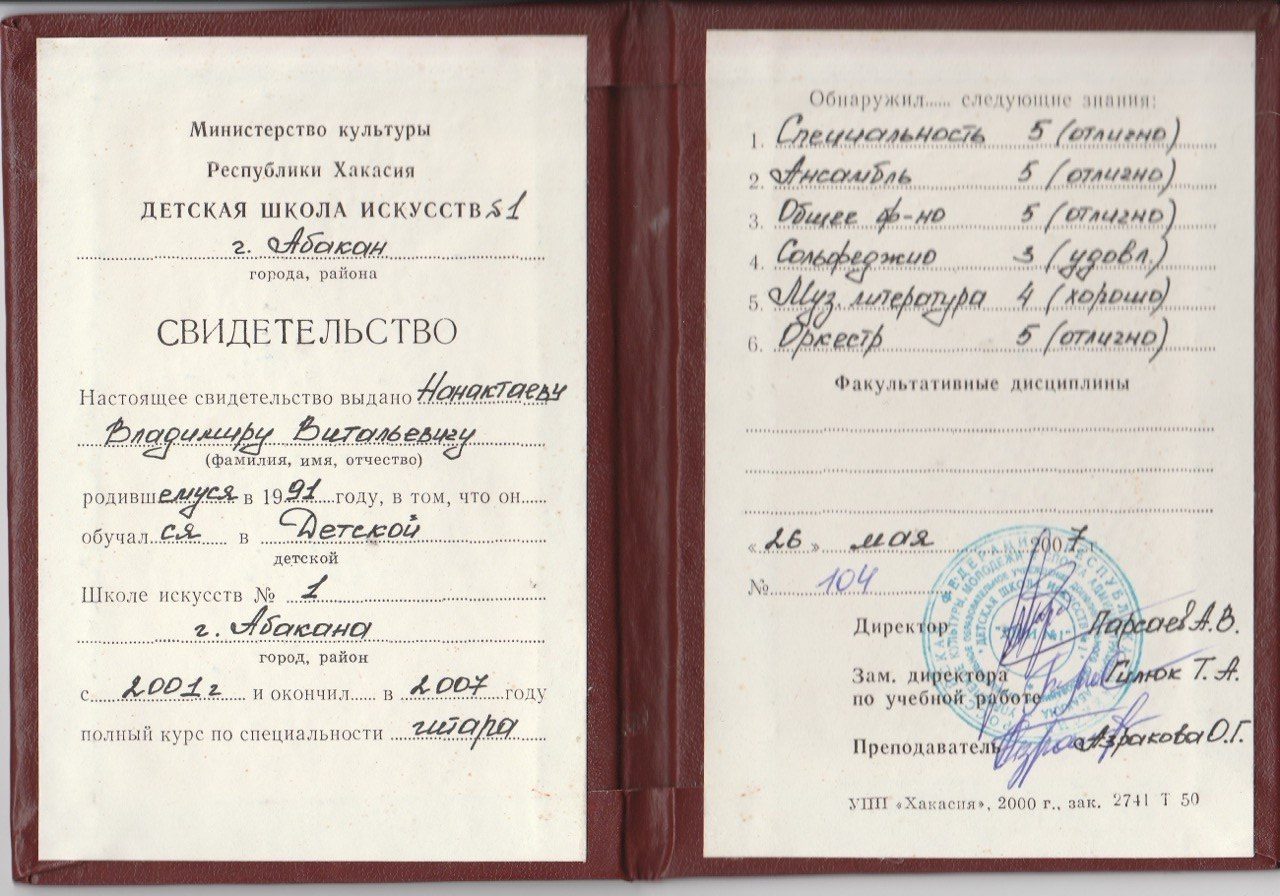 Министерство культуры
Республики Хакасия
ДЕТСКАЯ ШКОЛА ИСКУССТВ №1
г. Абакан
города, района
СВИДЕТЕЛЬСТВО
Настоящее свидетельство выдано Нанактаеву
Владимиру Витальевичу
(фамилия, имя, отчество)
родившемуся в 1991 году, в том, что он.....
обучался в Детской
детской
Школе искусств № 1
г. Абакана
город, район
с 2001г и окончил..... в 2007 году
полный курс по специальности гитара
Обнаружил..... следующие знания:
1. Специальность 5 (отлично)
2. Ансамбль 5 (отлично)
3. Общее ф-но 5 (отлично)
4. Сольфеджио 3 (удовл.)
5. Муз. литература 4 (хорошо)
6. Оркестр 5 (отлично)
Факультативные дисциплины
« 26 » мая 2007
№ 104
Директор Парсаев А.В.
Зам. директора Гилюк Т. А.
по учебной работе
Преподаватель Азракова О.Г.
УПП «Хакасия», 2000 г., зак. 2741 Т 50